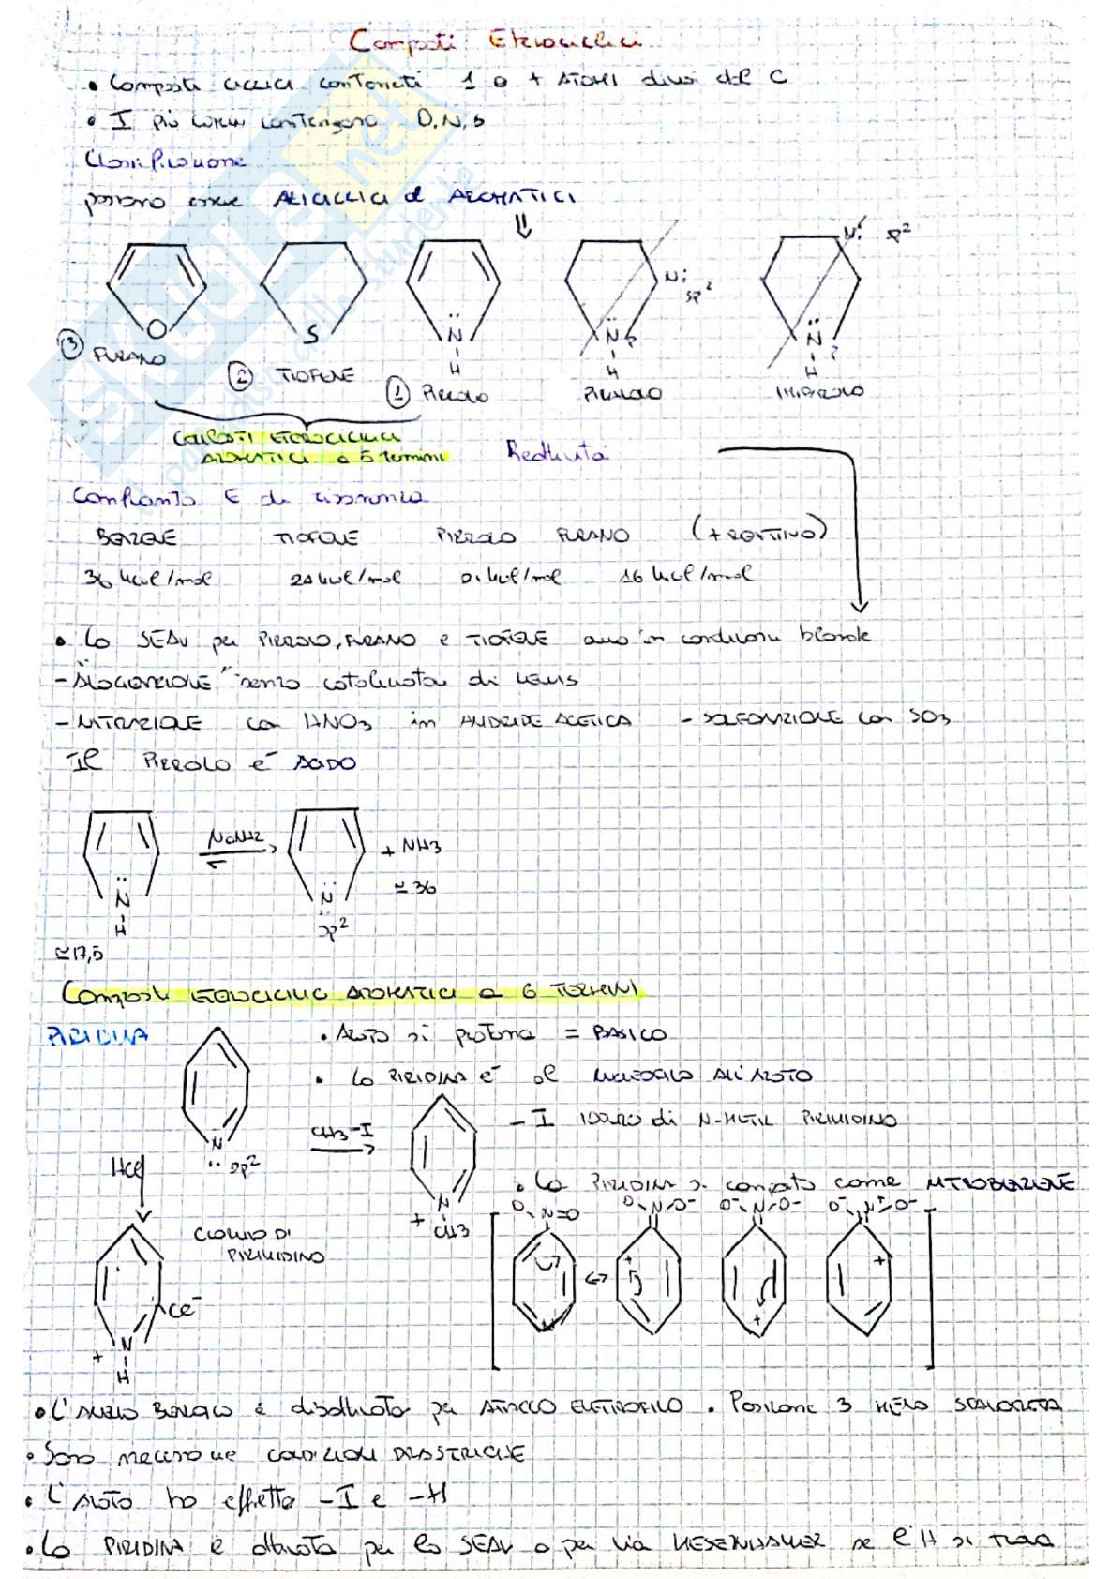 Composti Eterociclici
• Composti ciclici contenenti 1 o + ATOMI diversi dal C
• I più comuni contengono O, N, S
Classificazione
possono essere ALICICLICI ed AROMATICI
⇓
N: sp²
N: sp²
O S N H N H N H
③ FURANO ② TIOFENE ① PIRROLO PIRAZOLO IMIDAZOLO
COMPOSTI ETEROCICLICI
AROMATICI a 5 termini Reattività
Confronto E di risonanza
BENZENE TIOFENE PIRROLO FURANO (+ REATTIVO)
36 kcal/mol kcal/mol kcal/mol 16 kcal/mol
• La SEAr per PIRROLO, FURANO e TIOFENE in condizioni blande
- ALOGENAZIONE senza catalizzatori di LEWIS
- NITRAZIONE con HNO3 in ANIDRIDE ACETICA - SOLFONAZIONE con SO3
Il PIRROLO è ACIDO
NaNH2 + NH3
≃ 36
N H N sp²
≃ 17,5
Composti ETEROCICLICI AROMATICI a 6 TERMINI
PIRIDINA • AZOTO si protona = BASICO
• La PIRIDINA è NUCLEOFILA ALL'AZOTO
N sp² CH3-I - IODURO di N-METIL PIRIDINIO
HCl
• La PIRIDINA si comporta come NITROBENZENE
N + CH3
O N=O O N O- O- N O- O- N+ O-
CLORURO DI
PIRIDINIO
Cl-
N + H
• L'ANELLO BENZENICO è disattivato per ATTACCO ELETTROFILO. Posizione 3 MENO SCORAGGIATA
• Sono necessarie CONDIZIONI DRASTICHE
• L'AZOTO ha effetto -I e -M
• La PIRIDINA è attivata per la SEAr o per via MEISENHEIMER se l'H si trova